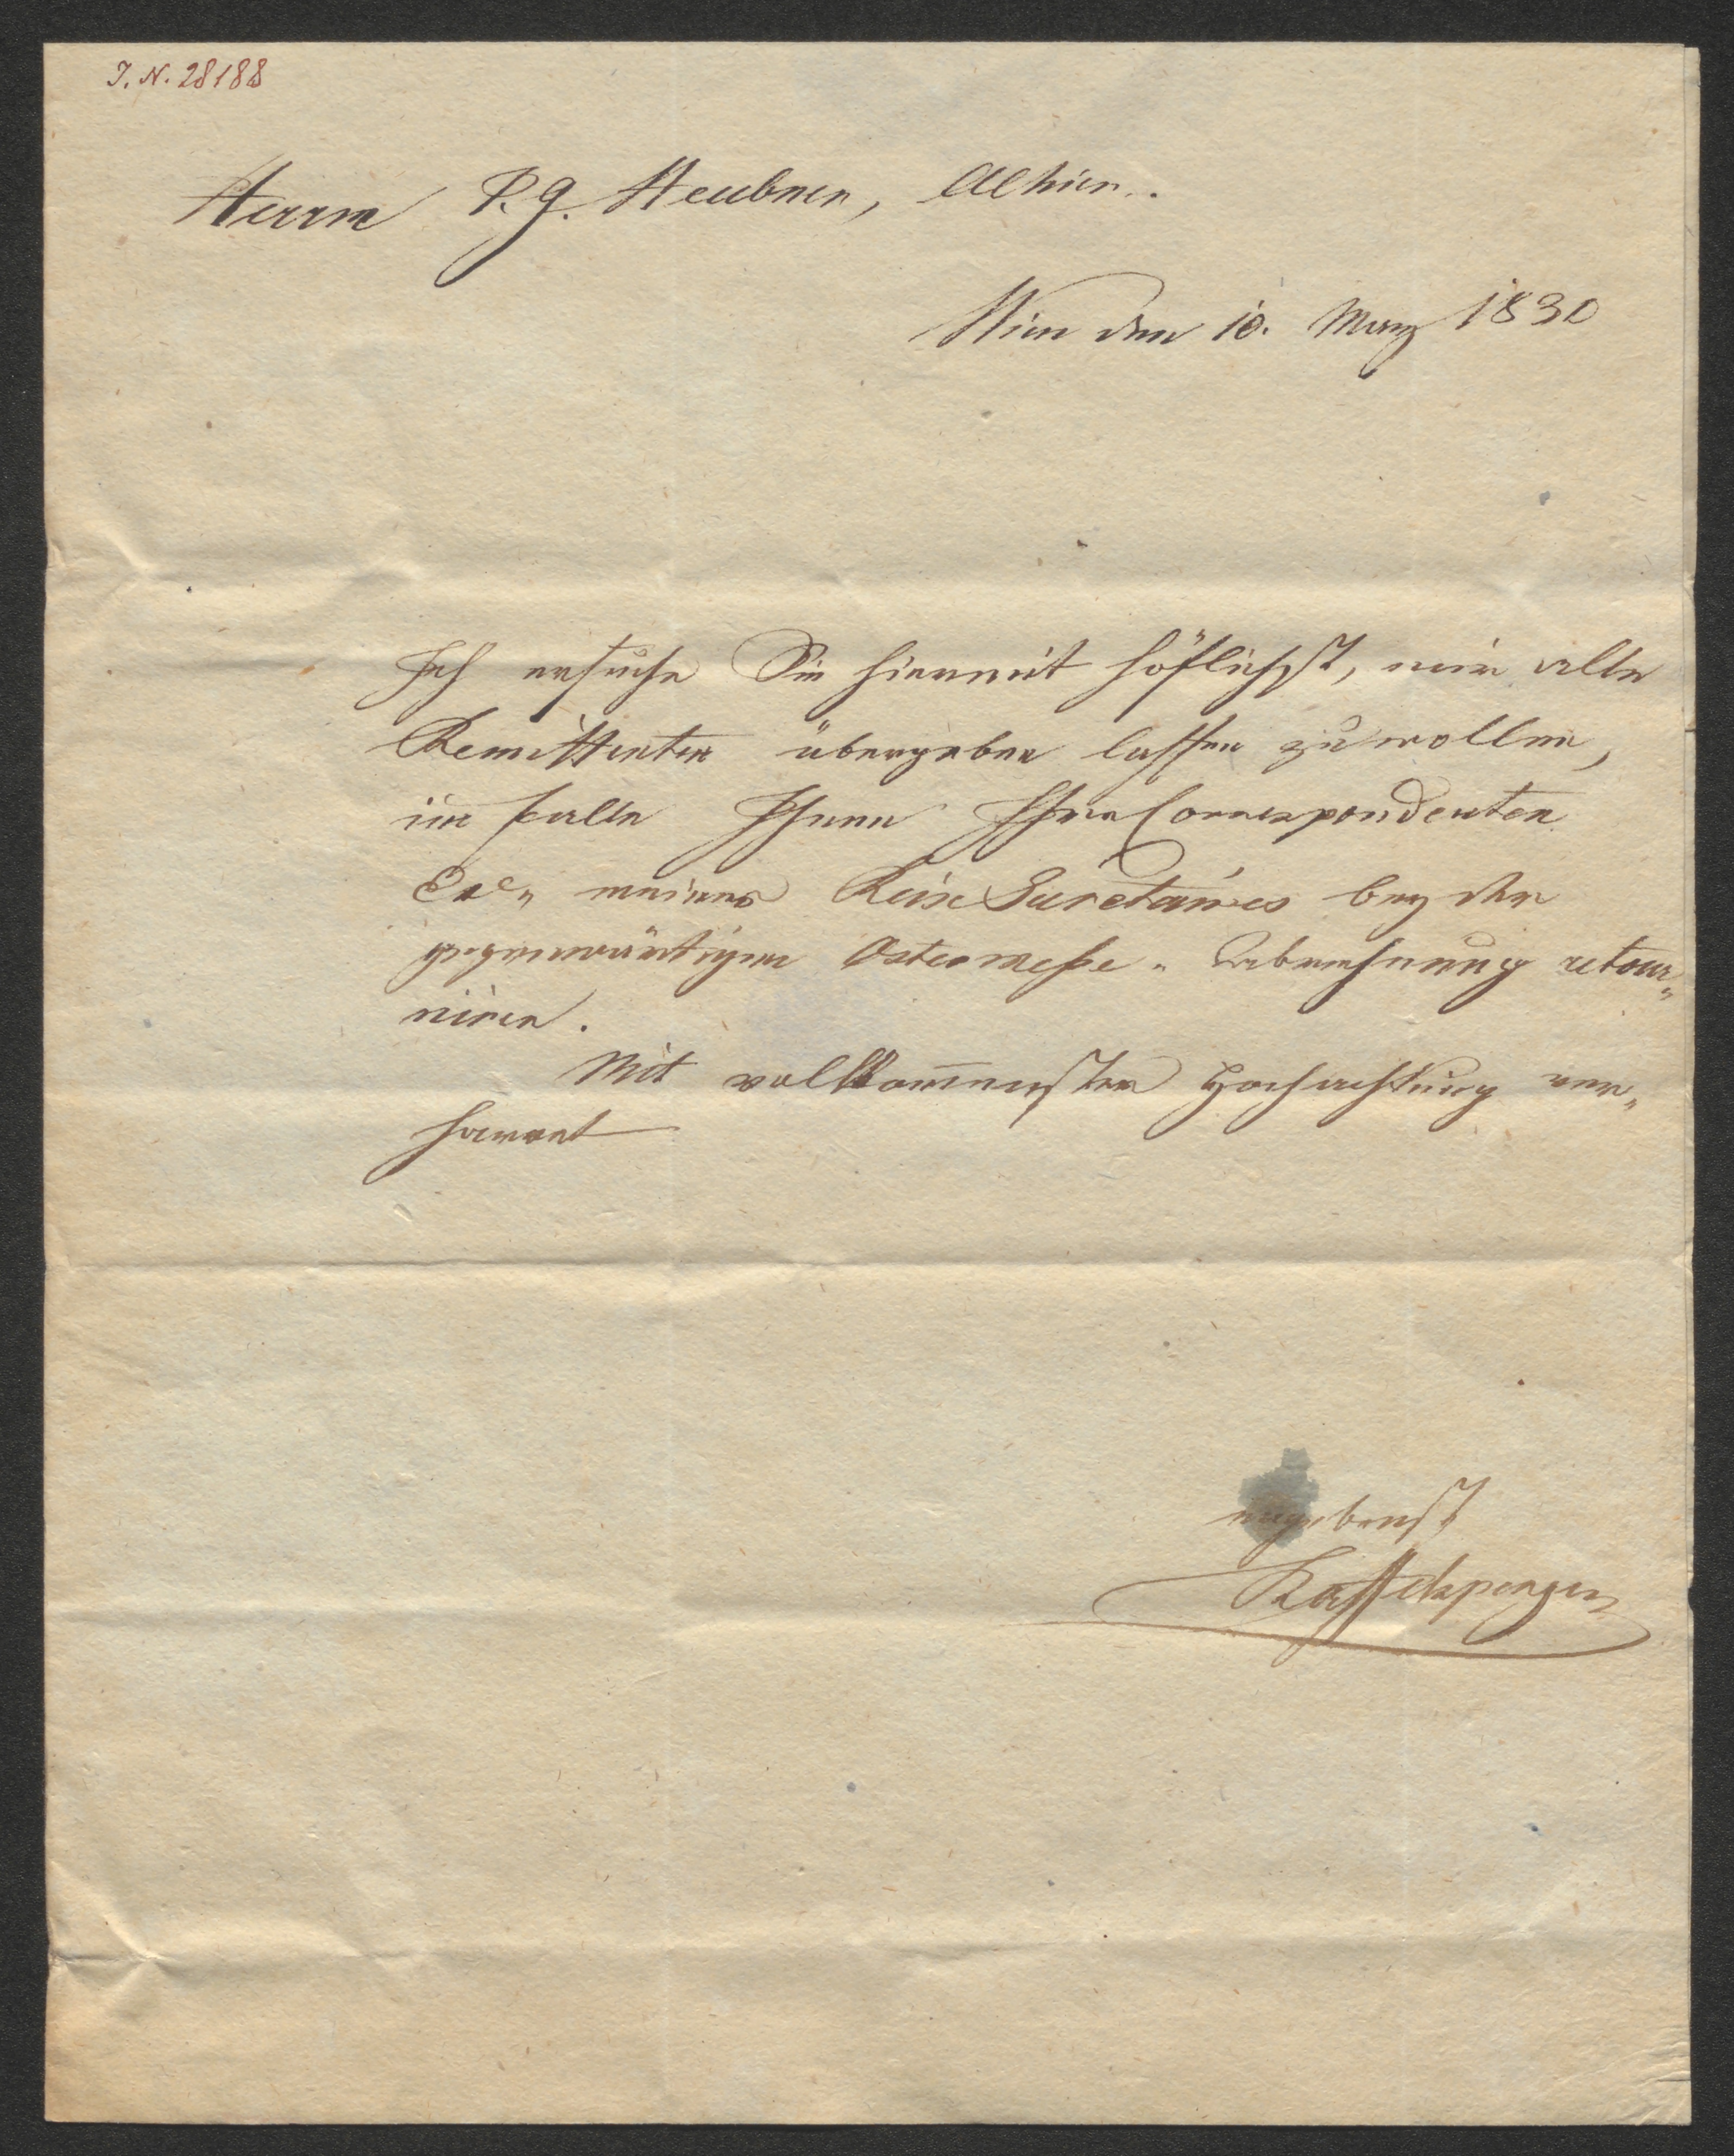 J. N. 28188
Herrn P. G. Heubner, Alhier.
Wien den 10. März 1830
Ich ersuche Sie hiermit höflichst, mir alle
Remittenten übergeben lassen zu wollen,
im falle Ihnen Ihre Correspondenten
meines Reise Secretaires bey der
gegenwärtigen Ostermeße "Abrechnung retour"
niren.
Mit vollkommenster Hochachtung ver"
harret
ergebenst